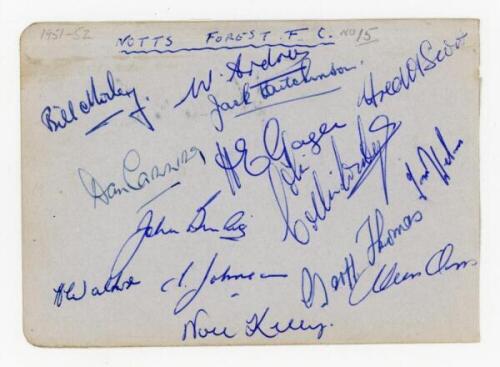 1951-52
NOTTS FOREST F. C.
No 15
Bill Morley.
W. Ardron
Jack Hutchinson.
Fred A Scott
H E Gager
Colin Collindridge
John Burkitt
Geoff Thomas
H Walker
T. Johnson
Noel Kelly.